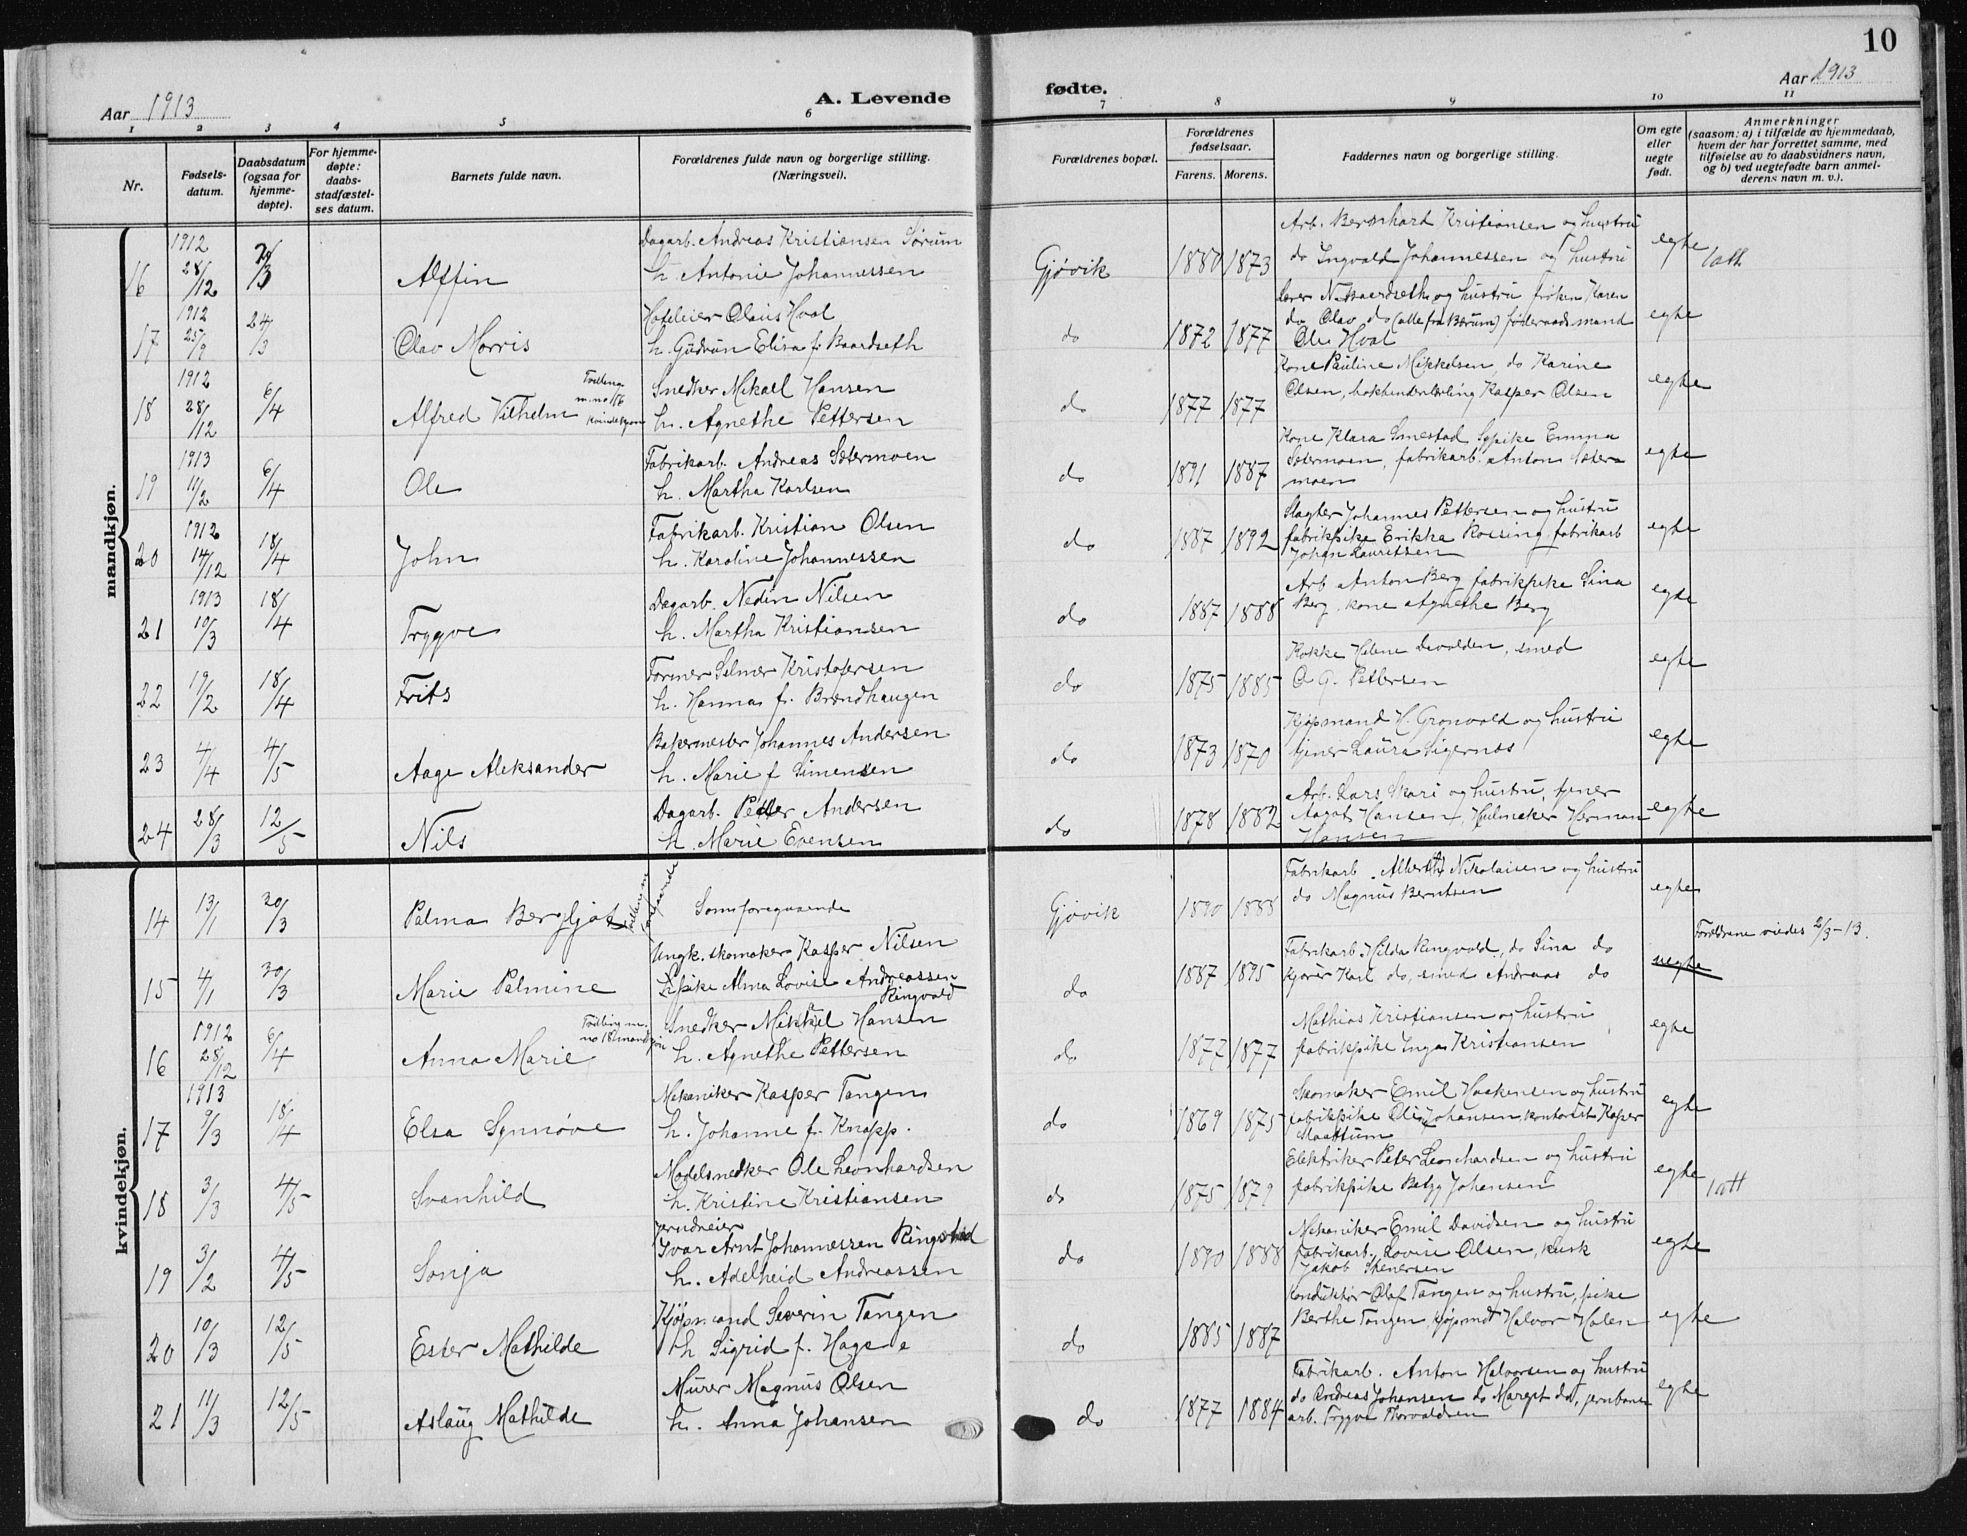 10
Aar 1913
A. Levende
fødte.
Aar 1913
1 2 3 4 5 6 7 8 9 10 11
Nr.
Fødsels-
datum.
Daabsdatum
(ogsaa for
hjemme-
døpte).
For hjemme-
døpte:
daabs-
stadfæstel-
ses datum.
Barnets fulde navn.
Forældrenes fulde navn og borgerlige stilling.
(Næringsvei).
Forældrenes bopæl.
Forældrenes
fødselsaar.
Farens. Morens.
Faddernes navn og stilling.
Om egte
eller
uegte
født.
Anmerkninger
(saasom: a) i tilfælde av hjemmedaab,
hvem der har forrettet samme, med
tilføielse av to daabsvidners navn,
og b) ved uegtefødte barn anmel-
derens navn m. v.).
mandkjøn.
1912
16 28/12 Alffin
Dagarb. Andreas Kristiansen Sørum
h. Antonie Johannessen
Gjøvik 1880 1873
Arb. Bernhard Kristiansen og hustru
do Ingvald Johannessen og hustru
egte
1912
17 25/9 24/3 Olav Morris
Hoteleier Olaus Hval
h. Gudrun Elisa f. Baardseth
do 1872 1877
og hustru frøken Karen
do Olav do (alle fra Bærum) føderaadsmand
Ole Hval
egte
1912
18 28/12 6/4 Alfred Vilhelm
Tvilling
m. no 16
kvindekjøn
Snedker Mikael Hansen
h. Agnethe Pettersen
do 1877 1877
Kone Pauline Mikkelsen, do Karine
Olsen, Kasper Olsen
egte
1913
19 11/2 6/4 Ole
Fabrikarb. Andreas Sætermoen
h. Martha Karlsen
do 1891 1887
Kone Klara Smestad, Sypike Emma
Sætermoen, fabrikarb. Anton Sæter-
moen
egte
1912
20 14/12 18/4 John
Fabrikarb. Kristian Olsen
h. Karoline Johannessen
do 1887 1892
Slagter Johannes Pettersen og hustru
fabrikpike Erikka Rossing fabrikarb
Johan Lauritsen
egte
1913
21 10/3 18/4 Trygve
Dagarb. Nedin Nilsen
h. Martha Kristiansen
do 1887 1888
Arb Anton Berg fabrikpike Lina
Berg, kone Agnethe Berg
egte
22 19/2 18/4 Frits
Former Selmer Kristofersen
h. Hanna f. Brændhaugen
do 1875 1885
Kokke Helene, smed
O. G. Pettersen
egte
23 4/4 4/5 Aage Aleksander
Bakermester Johannes Andersen
h. Marie f. Simensen
do 1873 1870
Kjøpmand H. Grønvold og hustru
tjener Laura Sigernes
egte
24 28/3 12/5 Nils
Dagarb. Petter Andersen
h. Marie Evensen
do 1878 1882
Arb. Lars Skari og hustru, tjener
Aagot Hansen, Hjulmaker Herman
Hansen
egte
kvindekjøn.
14 13/1 30/3 Palma Bergljot
Som foregaaende
Gjøvik 1890 1888
Fabrikarb. Albert Nikolaisen og hustru
do Magnus Berntsen
egte
15 4/1 30/3 Marie Palmine
Ungk. skomaker Kasper Nilsen
pike Alma Lovise Andreassen
Ringvold
do 1887 1895
Fabrikarb. Hilda Ringvold, do Lina do
kjører Karl do, smed Andreas do
uegte
Forældrene viedes 2/3-13.
1912
16 28/12 6/4 Anna Marie
Tvilling m.
no 18 mandkjøn
Snedker Mikkel Hansen
h. Agnethe Pettersen
do 1877 1877
Mathias Kristiansen og hustru
fabrikpike Inga Kristiansen
egte
1913
17 9/3 18/4 Elsa Synnøve
Mekaniker Kasper Tangen
h. Johanne f. Knapp.
do 1869 1875
Skomaker Emil Haakensen og hustru
fabrikpike Johansen, kontorist Kasper
egte
18 3/3 4/5 Svanhild
Modelsnedker Ole Leonhardsen
h. Kristine Kristiansen
do 1875 1879
Elektriker Peter Leonhardsen og hustru
fabrikpike Betzy Johansen
egte
19 3/2 4/5 Sonja
Ivar Arnt Johannessen Ringstad
h. Adelheid Andreassen
do 1890 1888
Mekaniker Emil Davidsen og hustru
fabrikarb. Lovise Olsen, kusk
Jakob Stenersen
egte
20 10/3 12/5 Ester Mathilde
Kjøpmand Severin Tangen
h Sigrid f. Hage
do 1885 1887
Konduktør Olaf Tangen og hustru, pike
Berthe Tangen, kjøpmd Halvor Holen
egte
21 11/3 12/5 Aslaug Mathilde
Murer Magnus Olsen
h. Anna Johansen
do 1877 1884
Fabrikarb. Anton Halvorsen og hustru
do Andreas Johansen do Margit do, jernbane-
arb. Trygve Thorvaldsen
egte